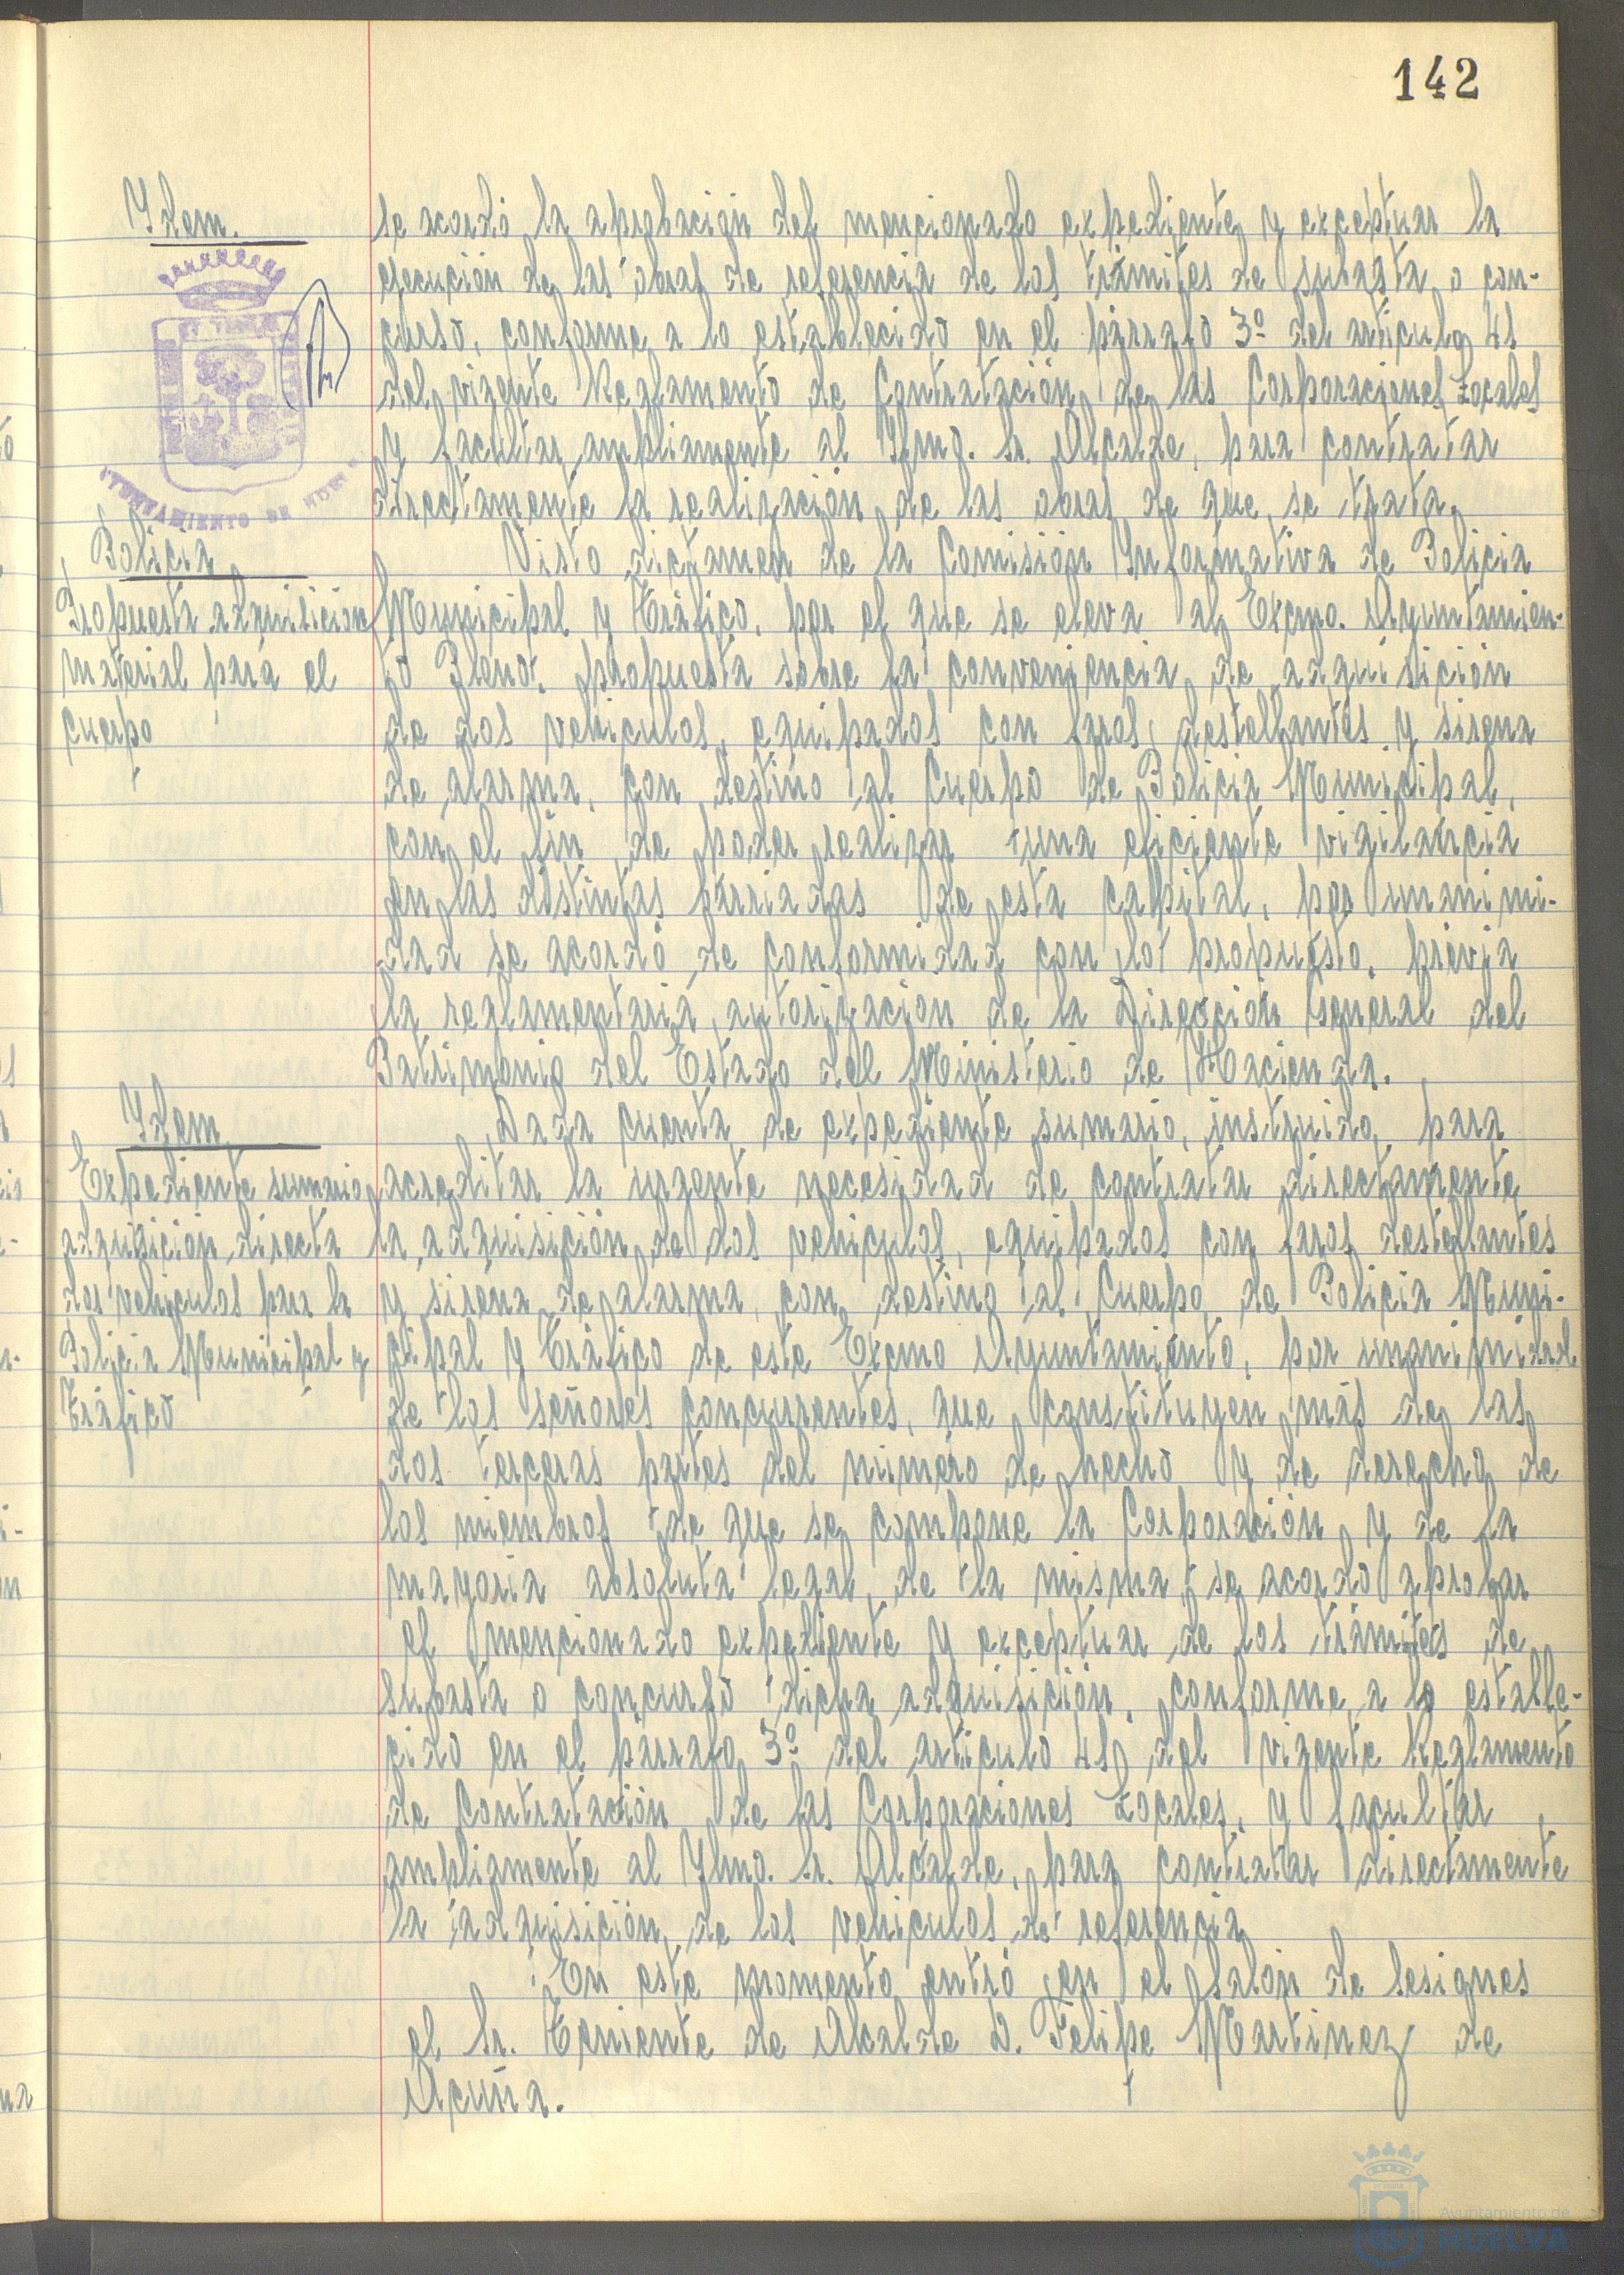 142
Ydem.
se acordó la aprobación del mencionado expediente y exceptuar la
ejecución de las obras de referencia de los trámites de subasta o con-
curso, conforme a lo establecido en el párrafo 3º del artículo 41
del vigente Reglamento de Contratación de las Corporaciones Locales
y facultar ampliamente al Ylmo. Sr. Alcalde, para contratar
directamente la realización de las obras de que se trata.
AYUNTAMIENTO DE HUELVA
Policía
Propuesta adquisicion
material para el
cuerpo
Visto dictamen de la Comisión Informativa de Policia
Municipal y Tráfico, por el que se eleva al Excmo. Ayuntamien-
to Pleno, propuesta sobre la conveniencia de adquisición
de dos vehiculos, equipados con faros, destellantes y sirena
de alarma, con destino al Cuerpo de Policia Municipal,
con el fin de poder realizar una eficiente vigilancia
en las distintas barriadas de esta capital, por unanimi-
dad se acordó de conformidad con lo propuesto, previa
la reglamentaria autorización de la Dirección General del
Patrimonio del Estado del Ministerio de Hacienda.
Ydem
Expediente sumario
adquisición directa
dos vehiculos para la
Policía Municipal y
Tráfico
Dada cuenta de expediente sumario, instruido para
acreditar la urgente necesidad de contratar directamente
la adquisición de dos vehiculos, equipados con faros destellantes
y sirena de alarma, con destino al Cuerpo de Policia Muni-
cipal y Tráfico de este Excmo Ayuntamiento, por unanimidad
de los señores concurrentes, que constituyen más de las
dos terceras partes del número de hecho y de derecho de
los miembros de que se compone la Corporación y de la
mayoria absoluta legal de la misma, se acordó aprobar
el mencionado expediente y exceptuar de los trámites de
subasta o concurso dicha adquisición, conforme a lo estable-
cido en el párrafo 3º del artículo 41 del vigente Reglamento
de Contratación de las Corporaciones Locales, y facultar
ampliamente al Ylmo. Sr. Alcalde, para contratar directamente
la adquisición de los vehiculos de referencia
En este momento entró en el Salón de Sesiones
el Sr. Teniente de Alcalde D. Felipe Martinez de
Acuña.
Ayuntamiento de
HUELVA